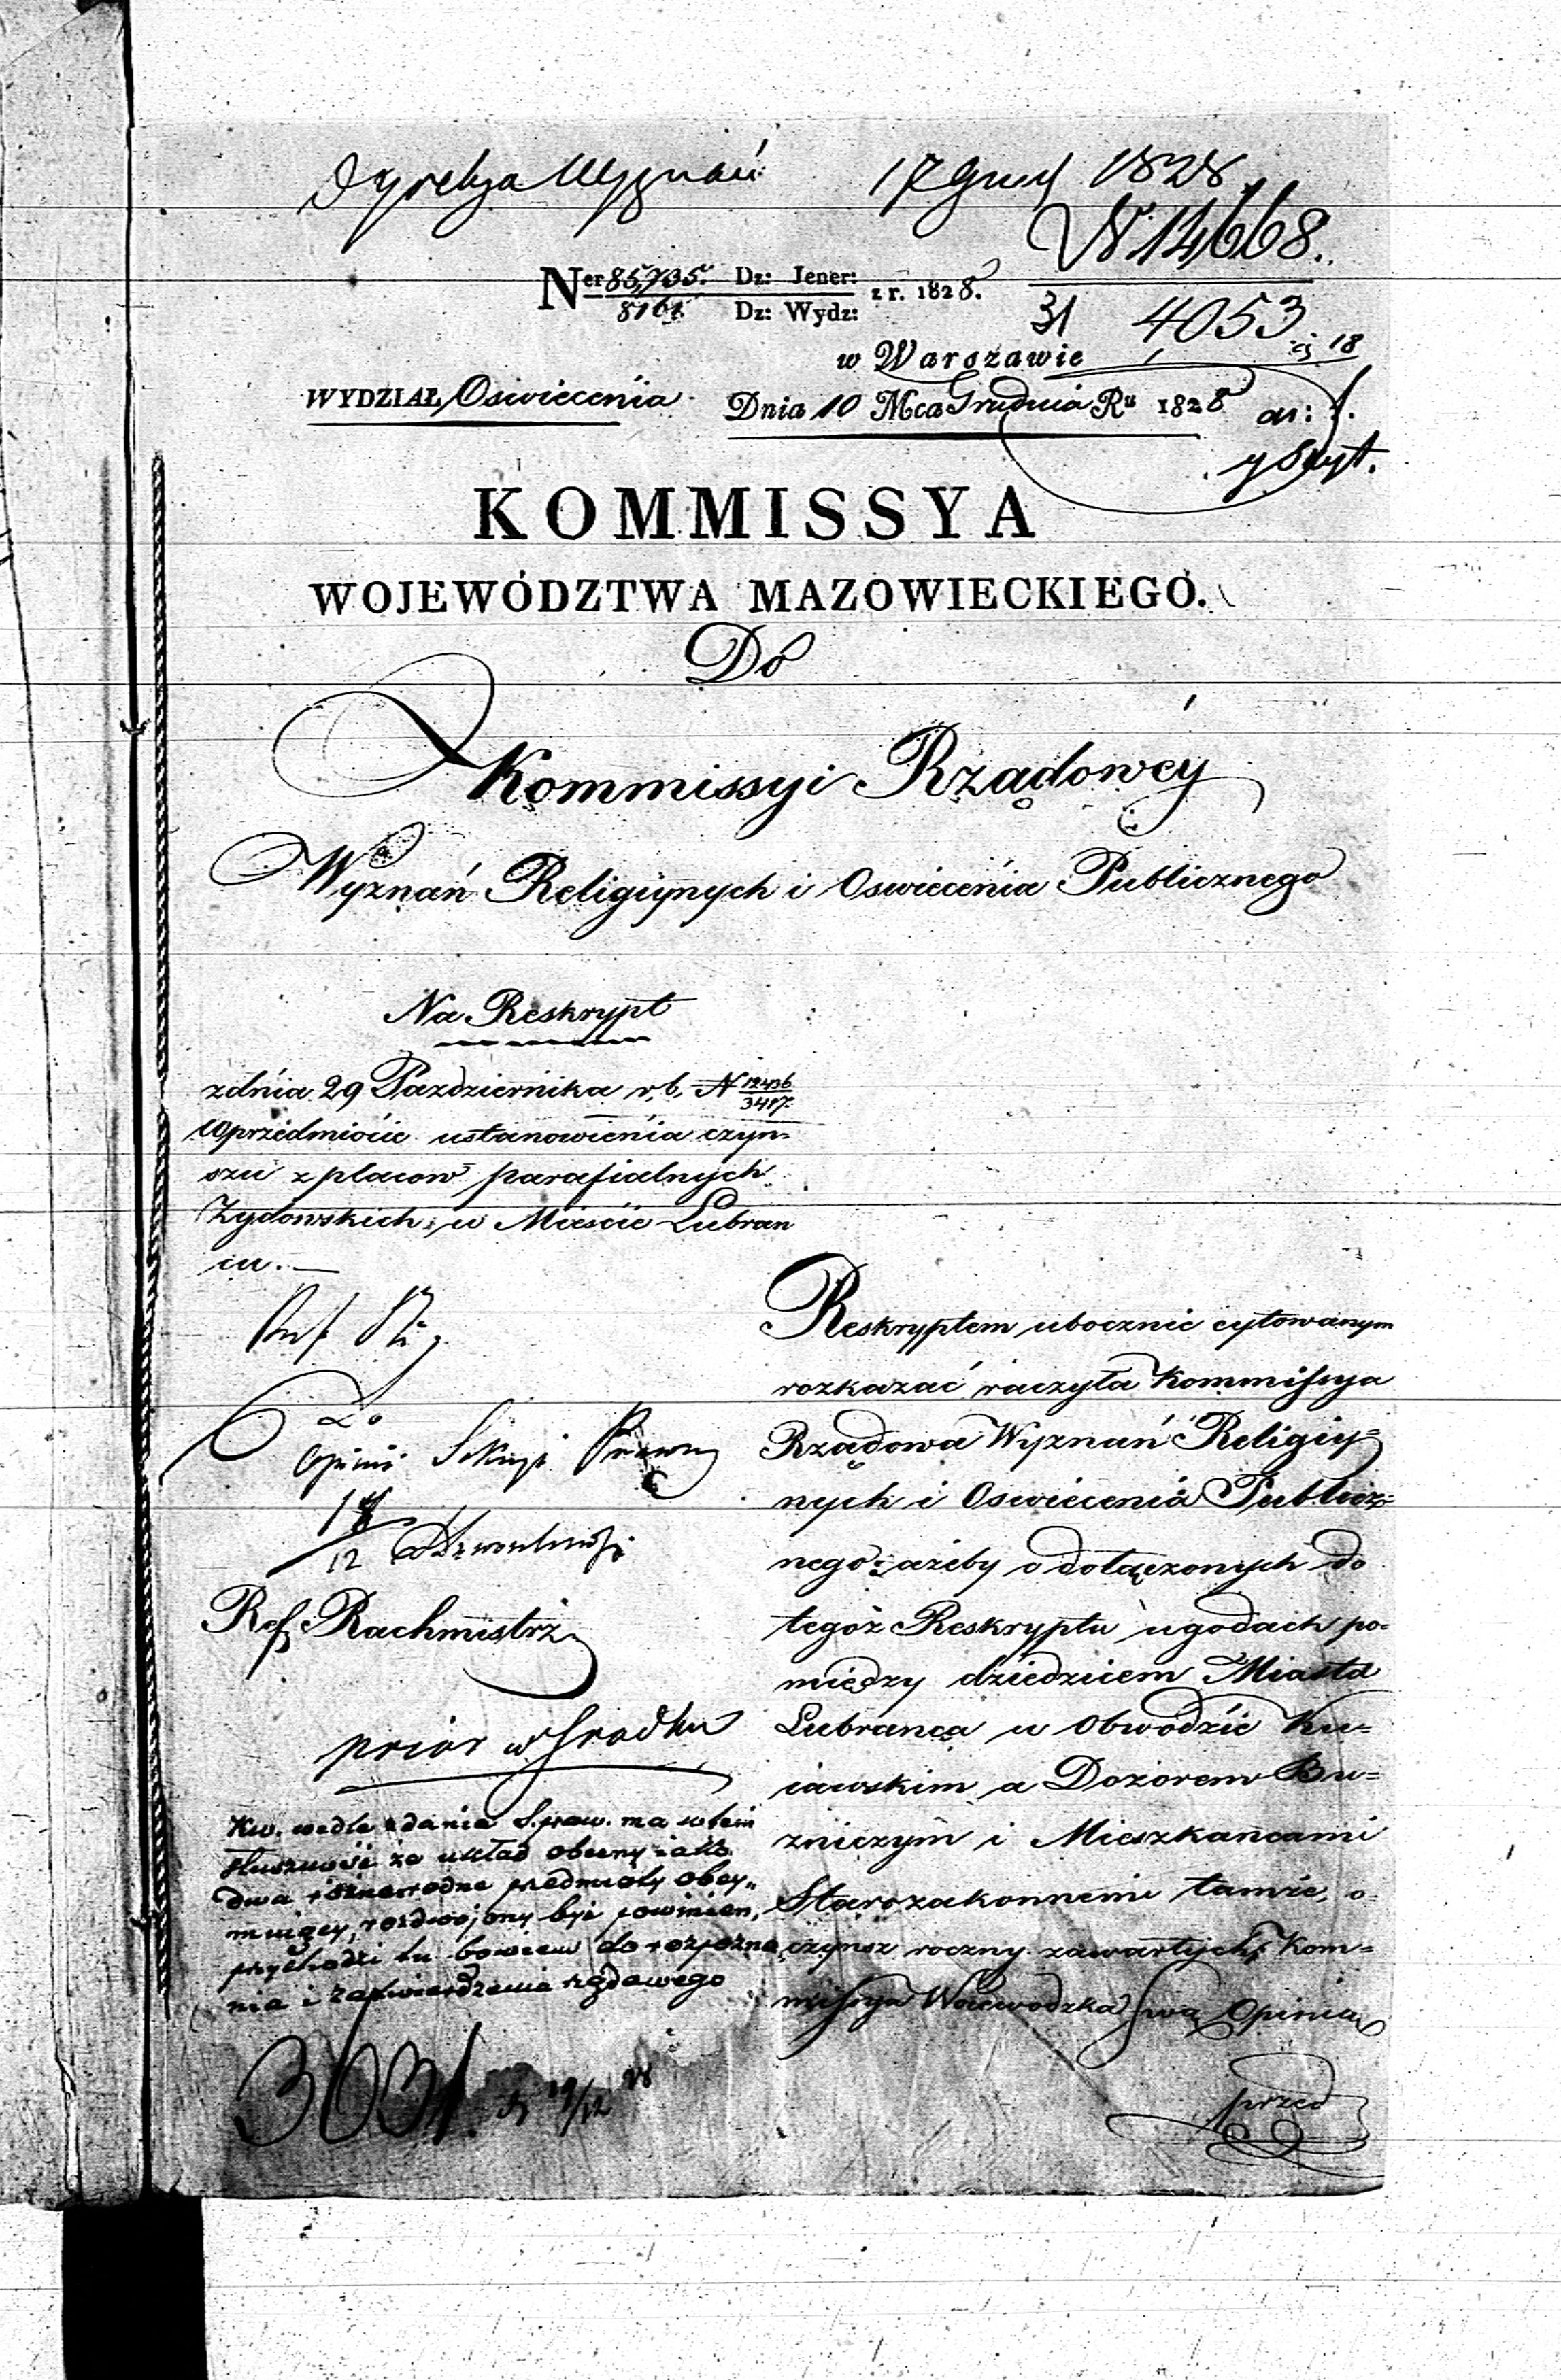 Dyrekcya Wyznań 17 Grud 1828
N 14,668.
31 4053
Ner 85,735. Dz: Jener:
8161 Dz: Wydz: z r. 1828.
w Warszawie
18
WYDZIAŁ Oswiecenia Dnia 10 Mca Grudnia Ru 1828
KOMMISSYA
WOJEWÓDZTWA MAZOWIECKIEGO.
Do
Kommissyi Rządowey
Wyznań Religiynych i Oswiecenia Publicznego
Na Reskrypt
z dnia 29 Pazdziernika r. b. N 12436/3487.
w przedmiocie ustanowienia czyn=
szu z placow parafialnych
Zydowskich w Miescie Lubran
iu. —
Do
Opinii Sekcyi Prawney
18/12
Ref. Rachmistrz
prior w srodku
Kw. wedle zdania S. praw. ma w tem
słuszność że układ obecny iako
dwa różnorodne przedmioty obey„
muiący, rozdwojony być powinien,
przychodzi tu bowiem do rozpozna
nia i zatwierdzenia rządowego
3031 19/12 28
Reskryptem ubocznie cytowanym
rozkazać raczyła Kommissya
Rządowa Wyznań Religiy=
nych i Oswiecenia Publicz=
nego: ażeby o dołączonych do
tegoż Reskryptu ugodach po=
między dziedzicem Miasta
Lubranca w Obwodzie Ku=
iawskim a Dozorem Bu=
zniczym i Mieszkancami
Starozakonnemi tamże, o=
czynsz roczny zawartych, Kom=
missya Woiewodzka swą Opinią
przed